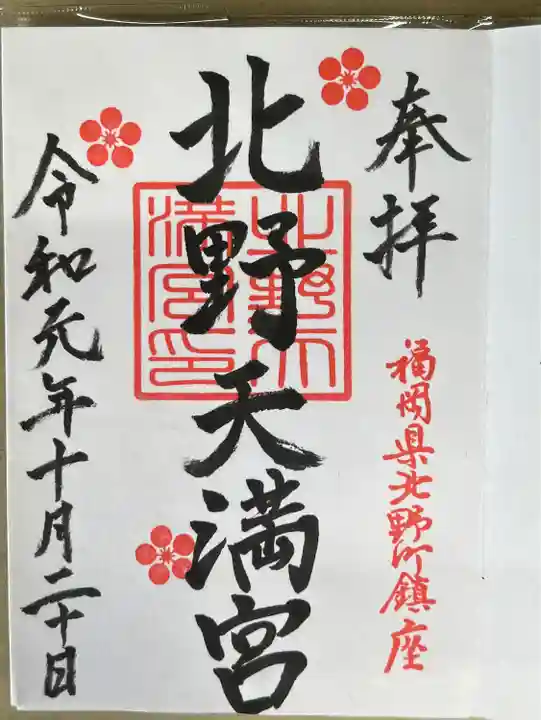 奉拝
福岡県北野町鎮座
北野天満宮
北野天満宮印
令和元年十月二十日